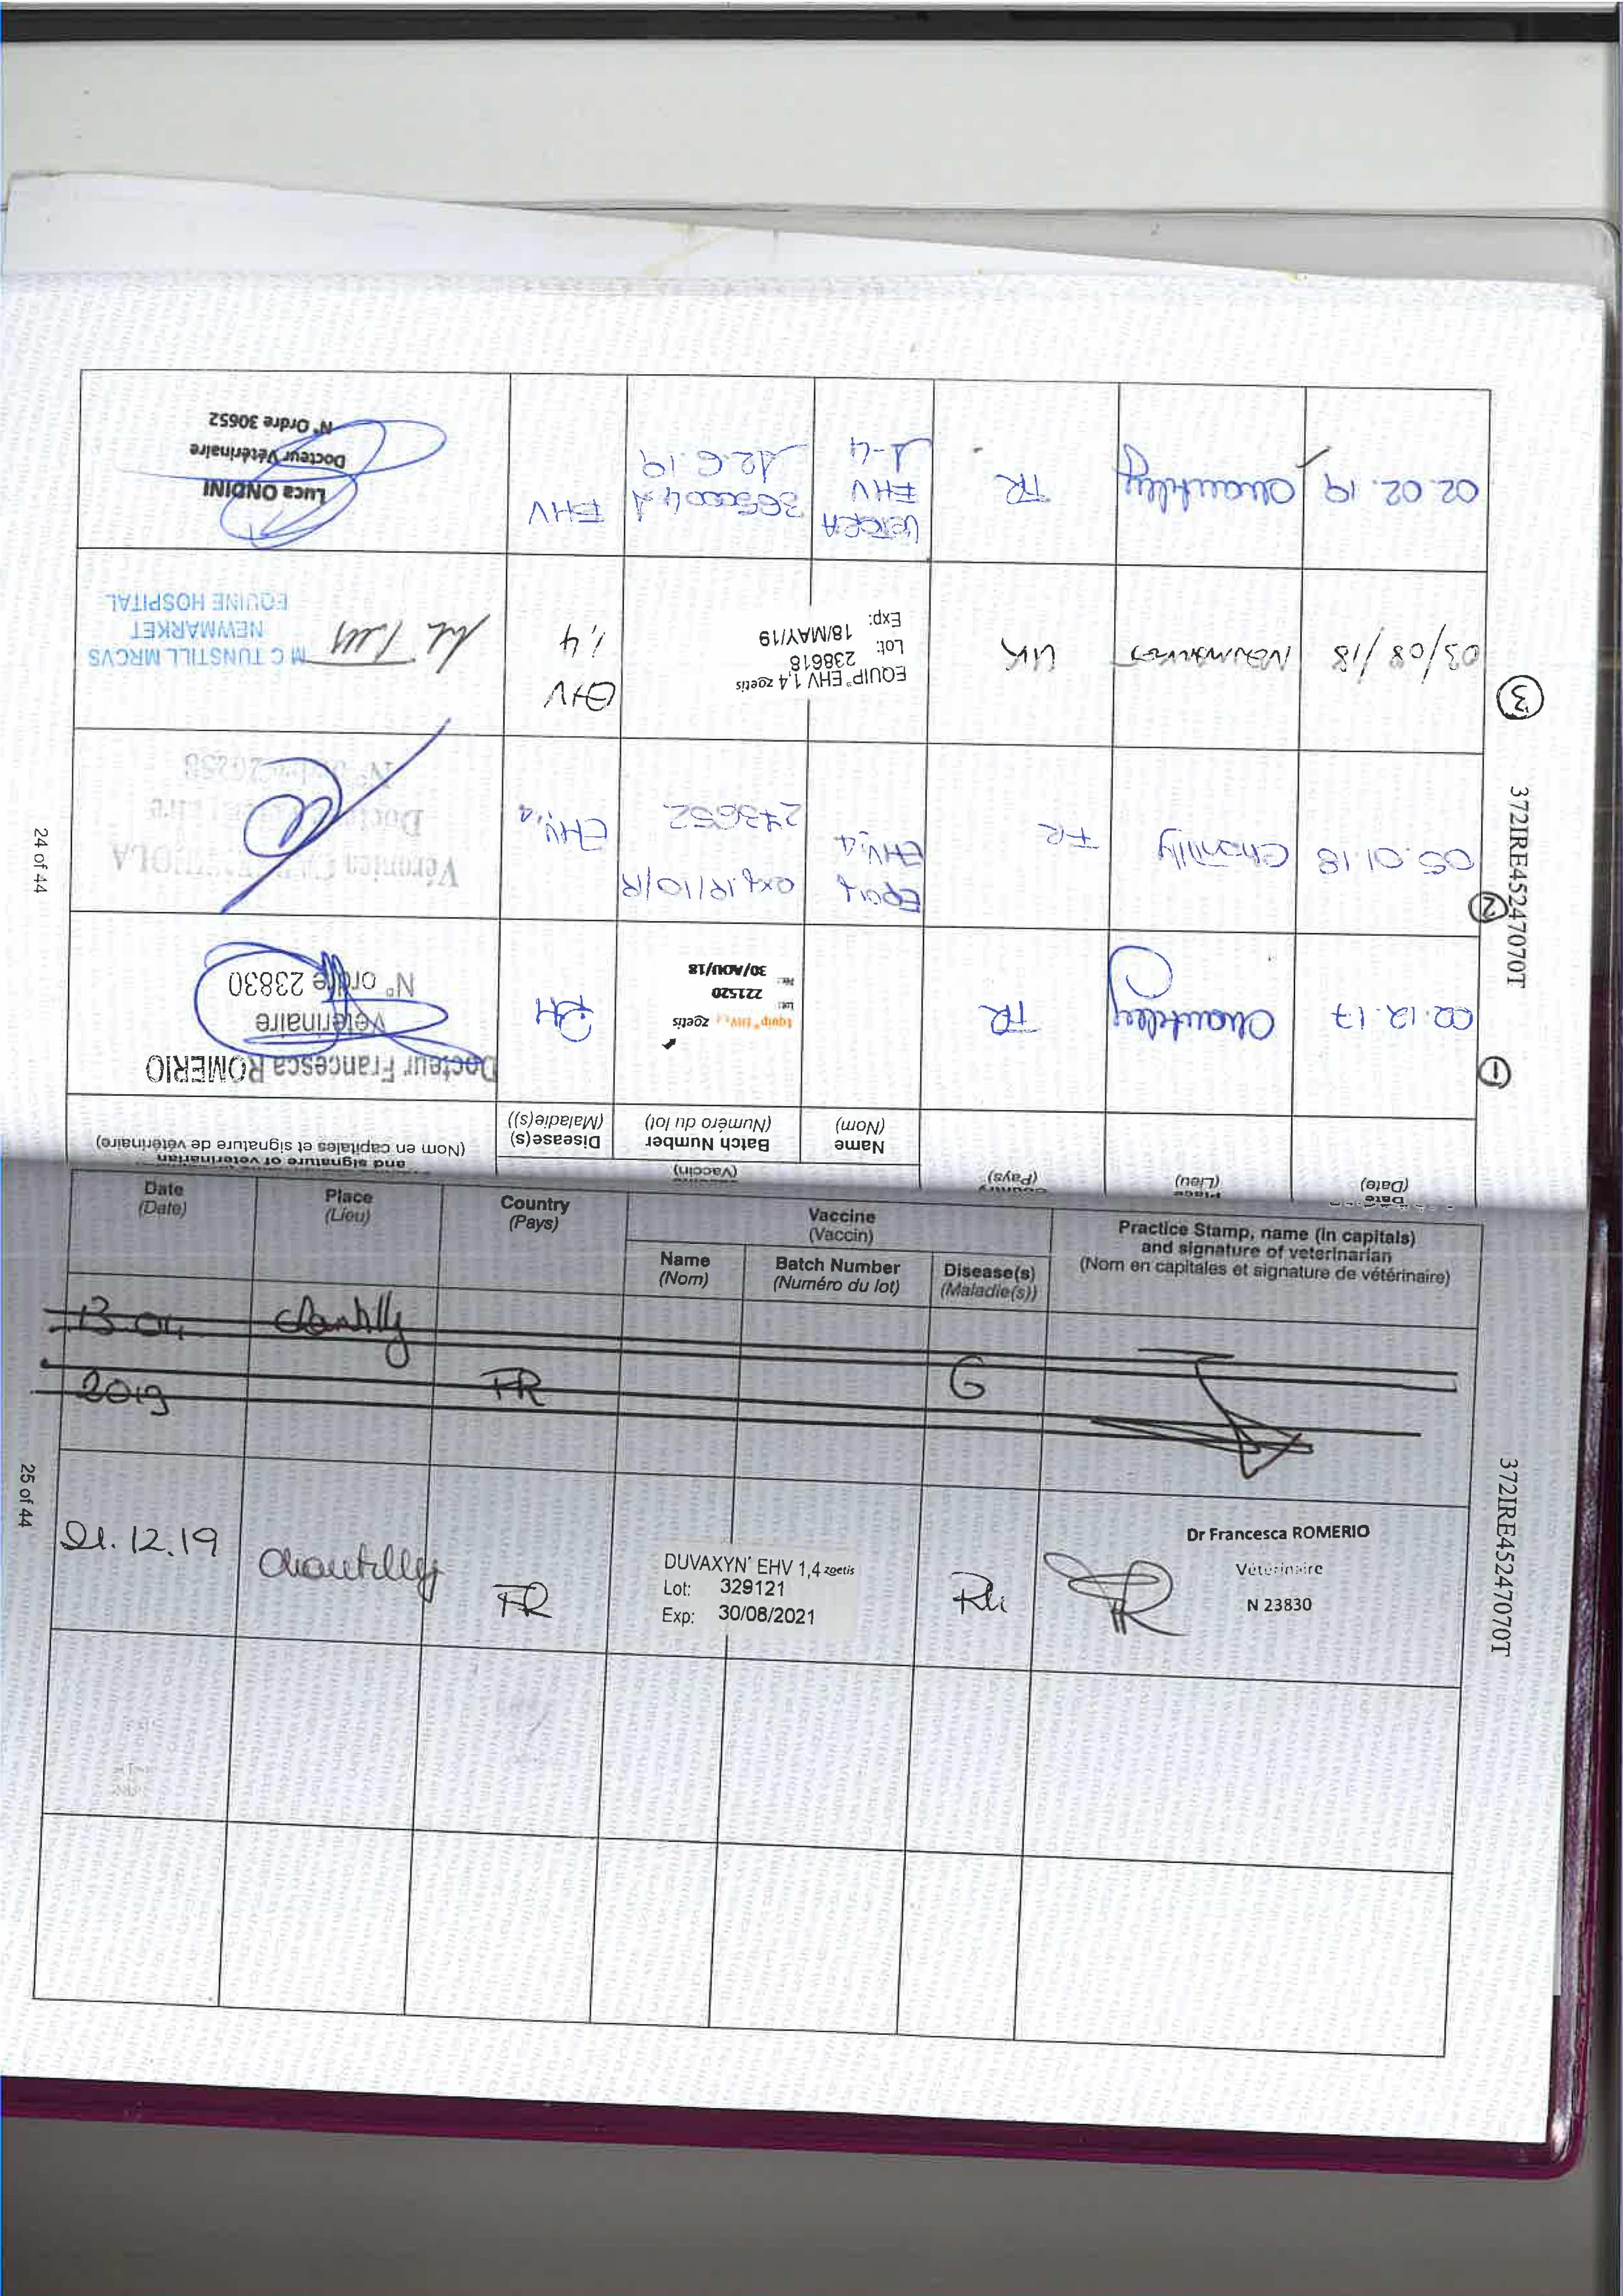 24 of 44
372IRE45247070T
Date
(Date)
Place
(Lieu)
Country
(Pays)
(Vaccin)
Name
(Nom)
Batch Number
(Numéro du lot)
Disease(s)
(Maladie(s))
and signature of veterinarian
(Nom en capitales et signature de vétérinaire)
①
02.12.17
Chantilly
FR
Equip EHV 1,4 zoetis
Lot:
221520
30/AOU/18
RH
Docteur Francesca ROMERIO
Vétérinaire
N° ordre 23830
②
05.01.18
Chantilly
FR
Equip
EHV1,4
exp.18/10/18
243652
EHV1,4
③
03/08/18
NEWMARKET
UK
EQUIP® EHV 1,4 zoetis
Lot: 238618
Exp: 18/MAY/19
EHV
1,4
M C TUNSTILL MRCVS
NEWMARKET
EQUINE HOSPITAL
02.02.19
Chantilly
FR
EHV
1-4
12.6.19
EHV
Luca ONDINI
Docteur Vétérinaire
N° Ordre 30652
25 of 44
372IRE45247070T
Date
(Date)
Place
(Lieu)
Country
(Pays)
Vaccine
(Vaccin)
Name
(Nom)
Batch Number
(Numéro du lot)
Disease(s)
(Maladie(s))
Practice Stamp, name (in capitals)
and signature of veterinarian
(Nom en capitales et signature de vétérinaire)
13 04
2019
Chantilly
FR
G
21.12.19
Chantilly
FR
DUVAXYN® EHV 1,4 zoetis
Lot: 329121
Exp: 30/08/2021
Rh
Dr Francesca ROMERIO
Vétérinaire
N 23830